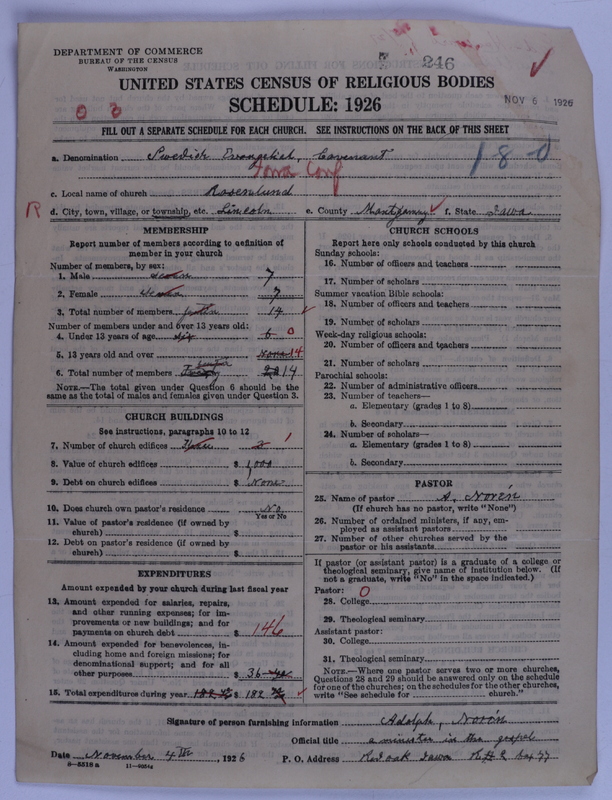 DEPARTMENT OF COMMERCE
BUREAU OF THE CENSUS
WASHINGTON
246
UNITED STATES CENSUS OF RELIGIOUS BODIES
SCHEDULE: 1926
NOV 6 1926
FILL OUT A SEPARATE SCHEDULE FOR EACH CHURCH. SEE INSTRUCTIONS ON THE BACK OF THIS SHEET
a. Denomination Swedish Evangelical, Covenant 180
Iowa Conf
c. Local name of church Rosenlund
R d. City, town, village, or township, etc. Lincoln e. County Montgomery f. State Iowa
MEMBERSHIP
Report number of members according to definition of
member in your church
Number of members, by sex:
1. Male seven 7
2. Female seven 7
3. Total number of members 14
Number of members under and over 13 years old:
4. Under 13 years of age six 6 0
5. 13 years old and over none 14
6. Total number of members Twenty 20 14
NOTE.—The total given under Question 6 should be the
same as the total of males and females given under Question 3.
CHURCH BUILDINGS
See instructions, paragraphs 10 to 12
7. Number of church edifices 1
8. Value of church edifices $ 1,000
9. Debt on church edifices $ None
10. Does church own pastor's residence? No
Yes or No
11. Value of pastor's residence (if owned by
church) $
12. Debt on pastor's residence (if owned by
church) $
EXPENDITURES
Amount expended by your church during last fiscal year
13. Amount expended for salaries, repairs,
and other running expenses; for im-
provements or new buildings; and for
payments on church debt $ 146
14. Amount expended for benevolences, in-
cluding home and foreign missions; for
denominational support; and for all
other purposes $ 36
15. Total expenditures during year 182 $ 182
CHURCH SCHOOLS
Report here only schools conducted by this church
Sunday schools:
16. Number of officers and teachers
17. Number of scholars
Summer vacation Bible schools:
18. Number of officers and teachers
19. Number of scholars
Week-day religious schools:
20. Number of officers and teachers
21. Number of scholars
Parochial schools:
22. Number of administrative officers
23. Number of teachers—
a. Elementary (grades 1 to 8)
b. Secondary
24. Number of scholars—
a. Elementary (grades 1 to 8)
b. Secondary
PASTOR
25. Name of pastor A. Norén
(If church has no pastor, write "None")
26. Number of ordained ministers, if any, em-
ployed as assistant pastors
27. Number of other churches served by the
pastor or his assistants
If pastor (or assistant pastor) is a graduate of a college or
theological seminary, give name of institution below. (If
not a graduate, write "No" in the space indicated.)
Pastor: 0
28. College
29. Theological seminary
Assistant pastor:
30. College
31. Theological seminary
NOTE.—Where one pastor serves two or more churches,
Questions 28 and 29 should be answered only on the schedule
for one of the churches; on the schedules for the other churches,
write "See schedule for church."
Signature of person furnishing information Adolph, Norén
Official title a minister in the gospel
Date November 4th, 1926 P. O. Address Red oak Iowa R#2 Box 77
8-5518 a